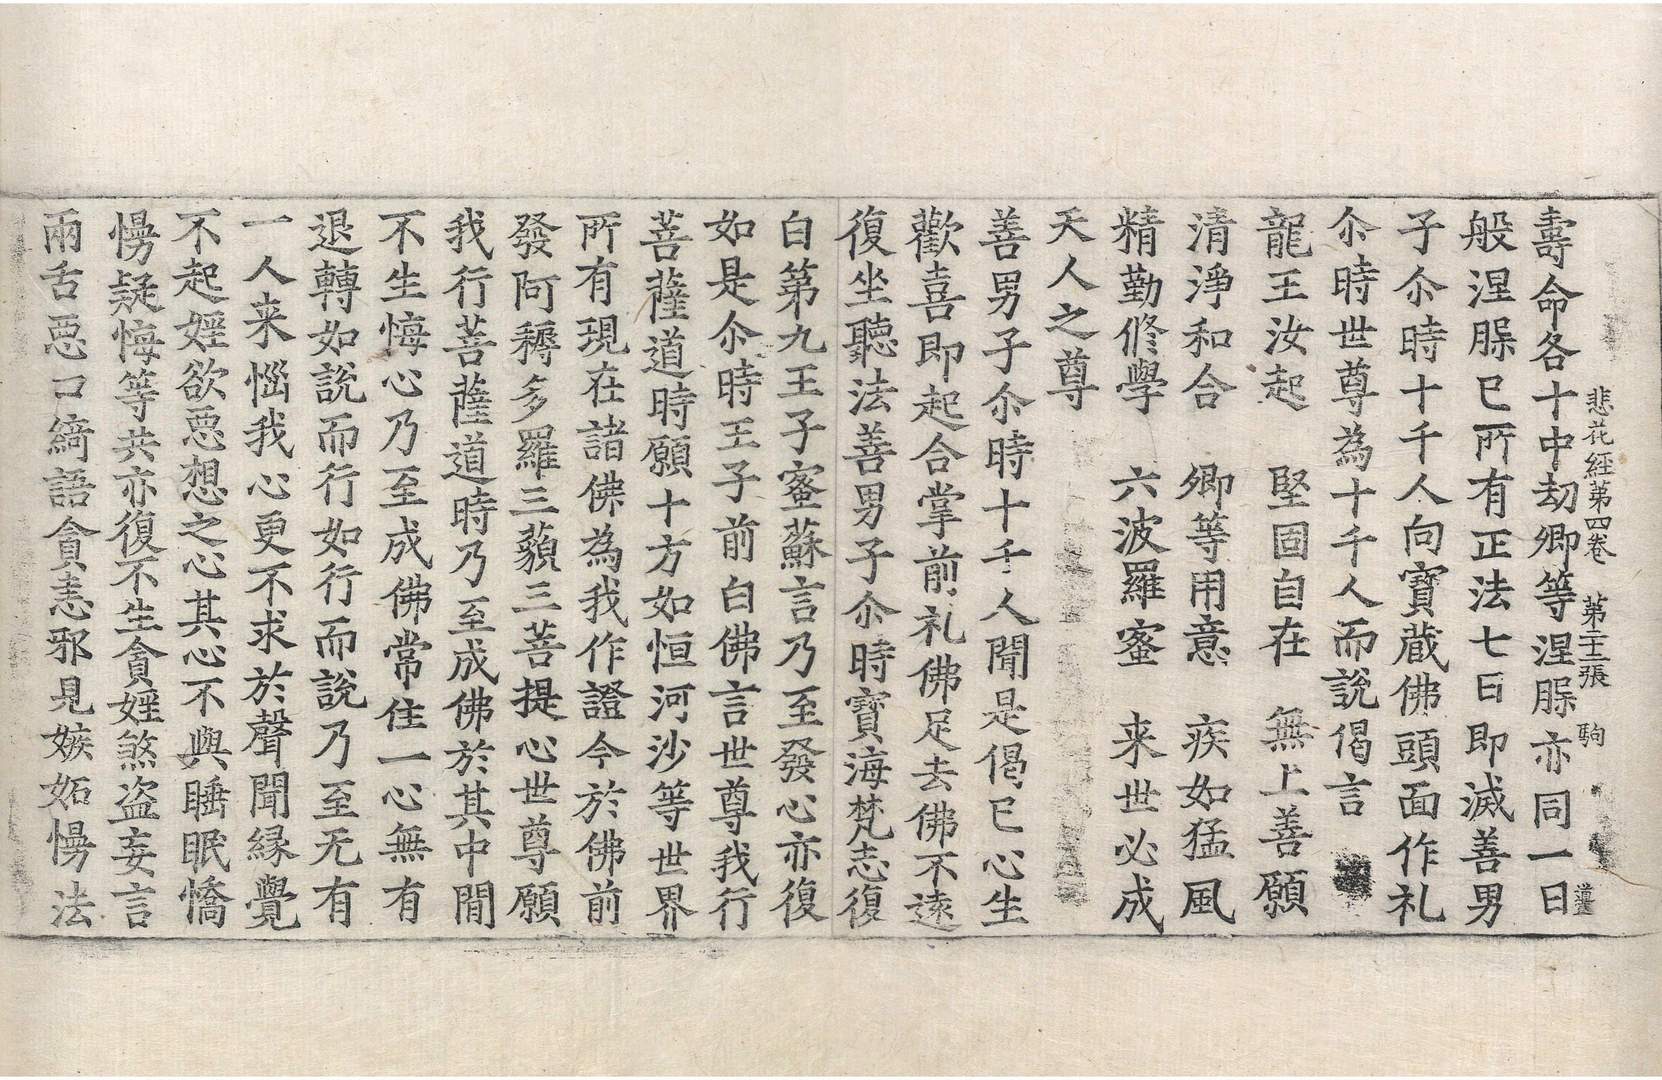 悲花経苐四卷　苐二十二張　駒
壽命各十中劫卿等涅脲亦同一日
般涅脲已所有正法七日即滅善男
子尒時十千人向寳蔵佛頭面作礼
尒時世尊為十千人而說偈言
龍王汝起　堅固自在　無上善願
清淨和合　卿等用意　疾如猛風
精勤修學　六波羅蜜　来世必成
天人之尊
善男子尒時十千人聞是偈已心生
歡喜即起合掌前礼佛足去佛不遠
復坐聽法善男子尒時寳海梵志復
白第九王子蜜蘇言乃至發心亦復
如是尒時王子前白佛言世尊我行
菩薩道時願十方如恒河沙等世界
所有現在諸佛為我作證今於佛前
發阿耨多羅三藐三菩提心世尊願
我行菩薩道時乃至成佛於其中間
不生悔心乃至成佛常住一心無有
退轉如說而行如行而說乃至无有
一人来惱我心更不求於聲聞緣覺
不起婬欲惡想之心其心不與睡眠憍
慢疑悔等共亦復不生貪婬煞盗妄言
兩舌惡口綺語貪恚邪見嫉妬慢法